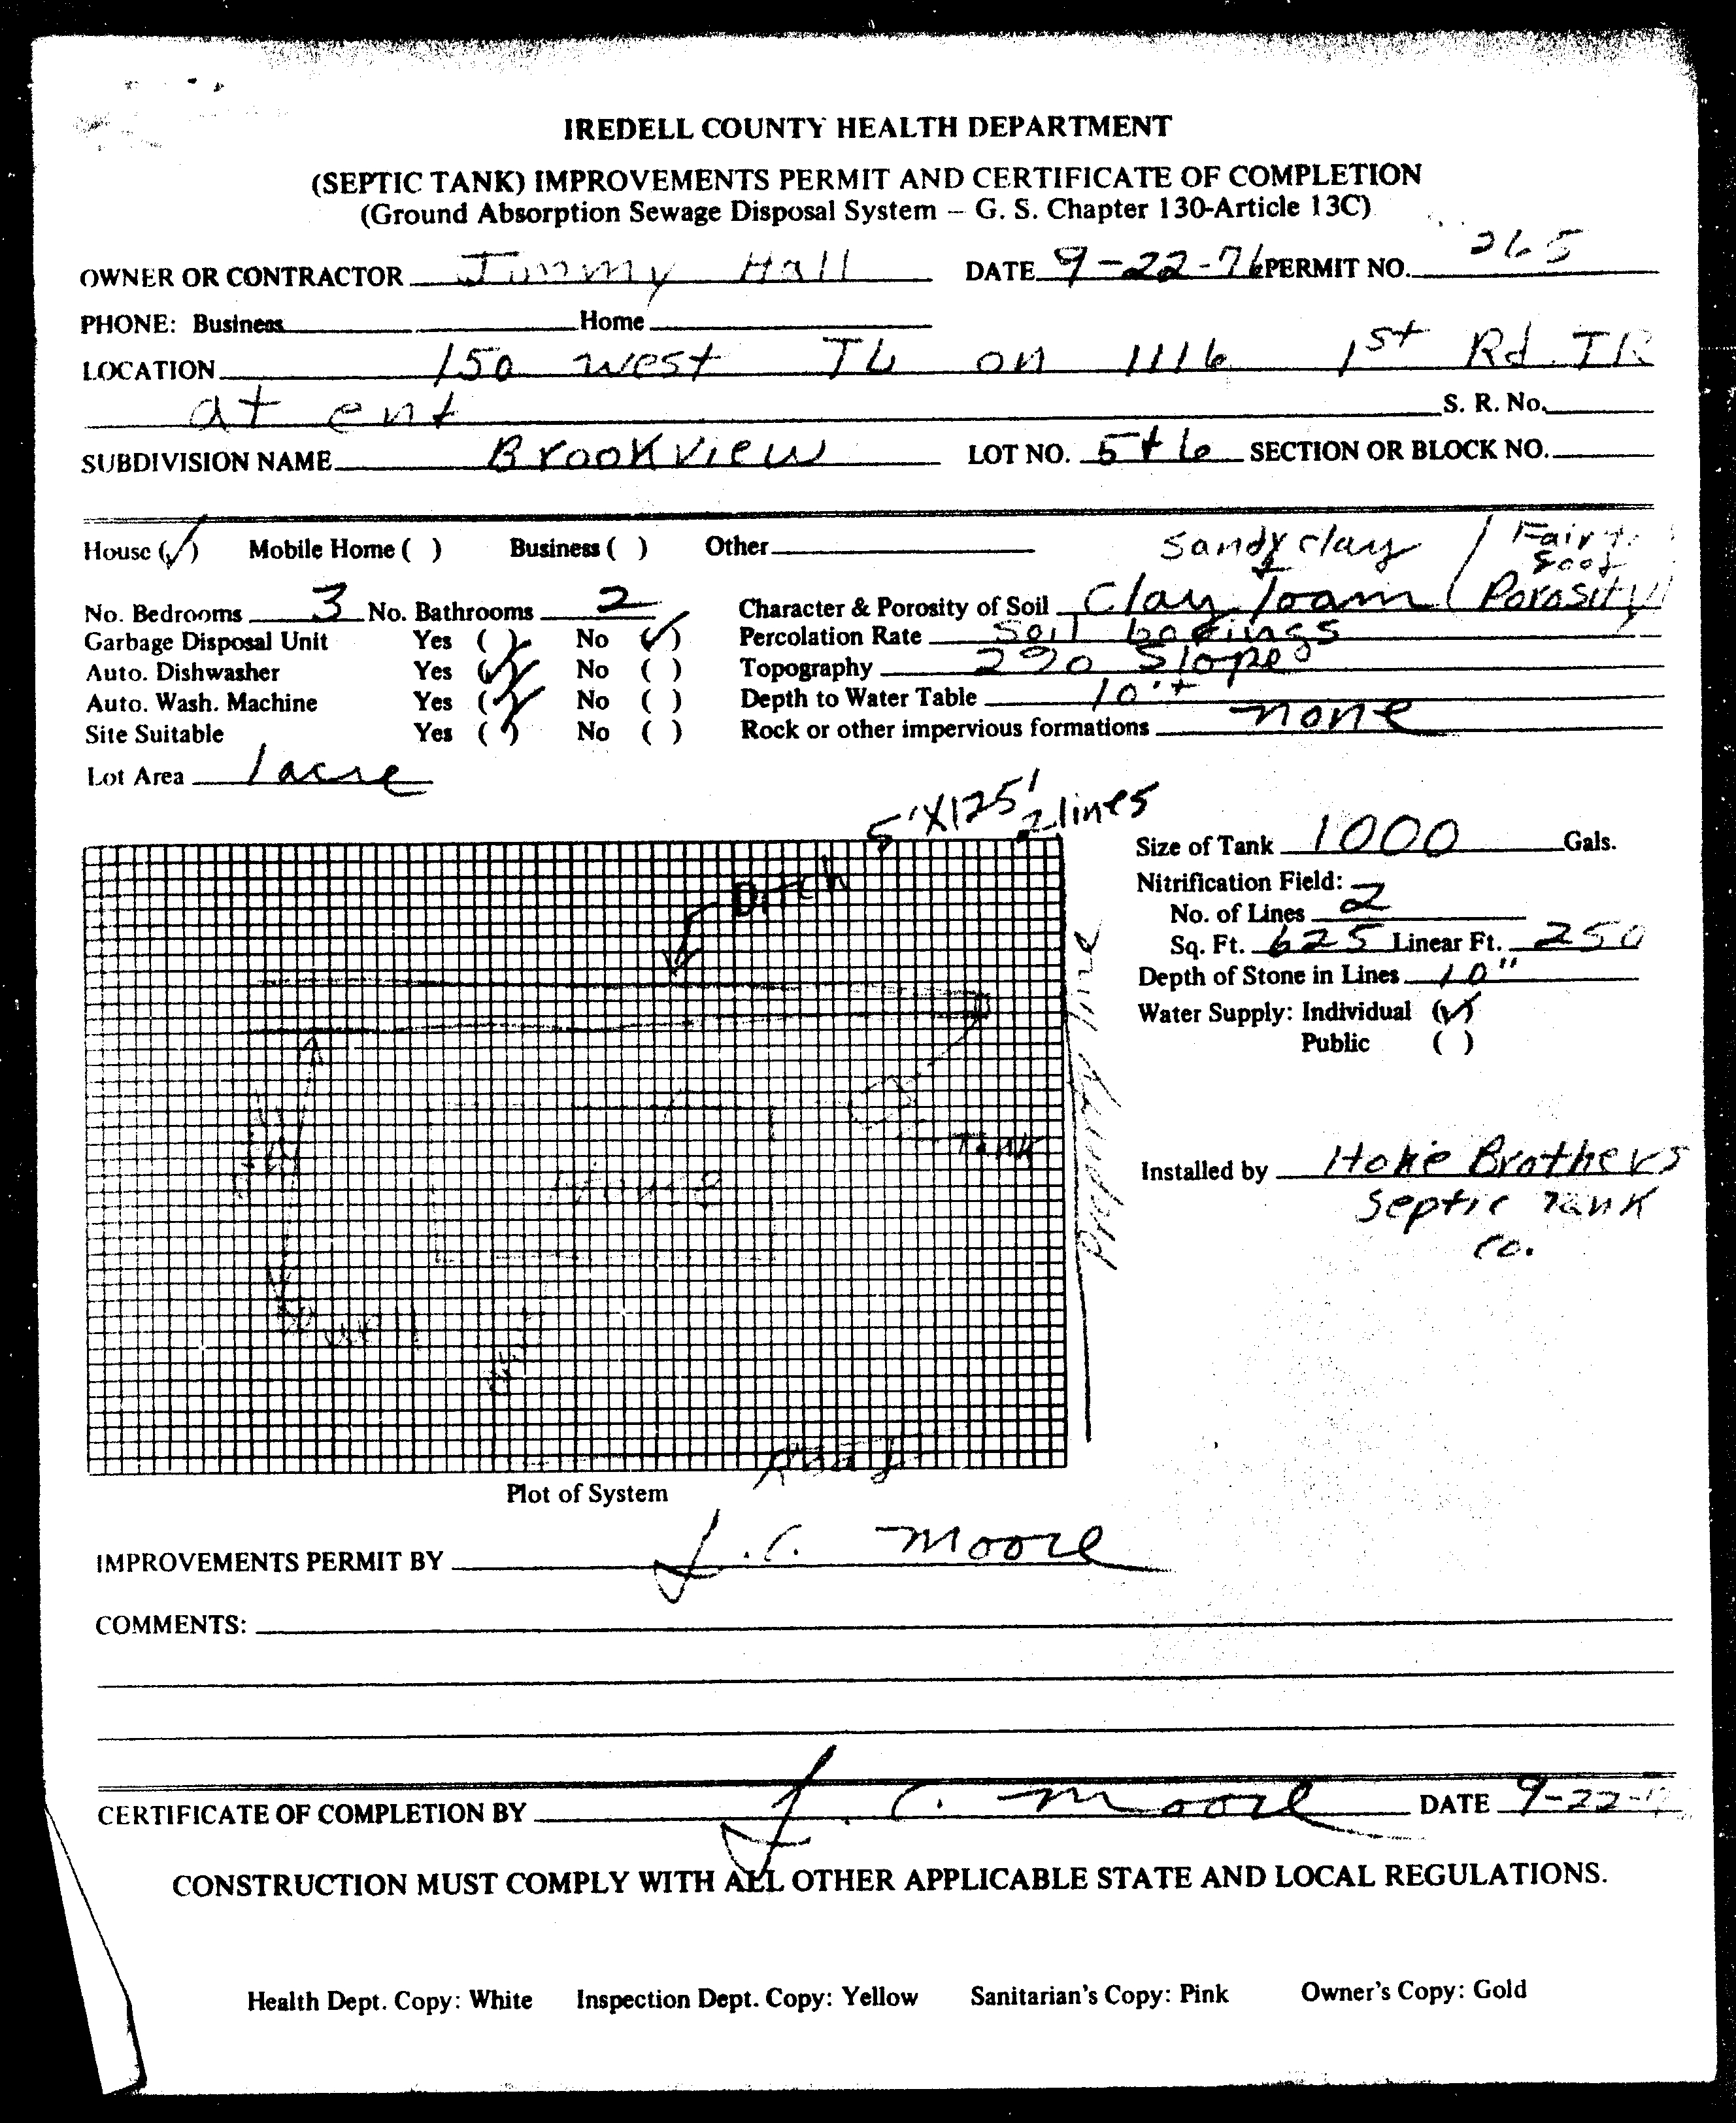 IREDELL COUNTY HEALTH DEPARTMENT
(SEPTIC TANK) IMPROVEMENTS PERMIT AND CERTIFICATE OF COMPLETION
(Ground Absorption Sewage Disposal System – G. S. Chapter 130-Article 13C)
OWNER OR CONTRACTOR Jimmy Hall DATE 9-22-76 PERMIT NO. 265
PHONE: Business Home
LOCATION 150 west TL on 1116 1st Rd. TR
at ent S. R. No.
SUBDIVISION NAME Brookview LOT NO. 5+6 SECTION OR BLOCK NO.
House (✓) Mobile Home ( ) Business ( ) Other
Sandy clay / Fair to good
No. Bedrooms 3 No. Bathrooms 2 Character & Porosity of Soil Clay loam (Porosity)
Garbage Disposal Unit Yes ( ) No (✓) Percolation Rate Soil borings
Auto. Dishwasher Yes (✓) No ( ) Topography 2% Slope
Auto. Wash. Machine Yes (✓) No ( ) Depth to Water Table 10'+
Site Suitable Yes (✓) No ( ) Rock or other impervious formations none
Lot Area 1 acre
5'X125' 2 lines
Size of Tank 1000 Gals.
Nitrification Field:
No. of Lines 2
Sq. Ft. 625 Linear Ft. 250
Depth of Stone in Lines 10"
Water Supply: Individual (✓)
Public ( )
Ditch
Property line
Tank
House
Well
Road
Installed by Hoke Brothers
Septic Tank
Co.
Plot of System
IMPROVEMENTS PERMIT BY J. C. Moore
COMMENTS:
CERTIFICATE OF COMPLETION BY J. C. Moore DATE 9-22-
CONSTRUCTION MUST COMPLY WITH ALL OTHER APPLICABLE STATE AND LOCAL REGULATIONS.
Health Dept. Copy: White Inspection Dept. Copy: Yellow Sanitarian's Copy: Pink Owner's Copy: Gold